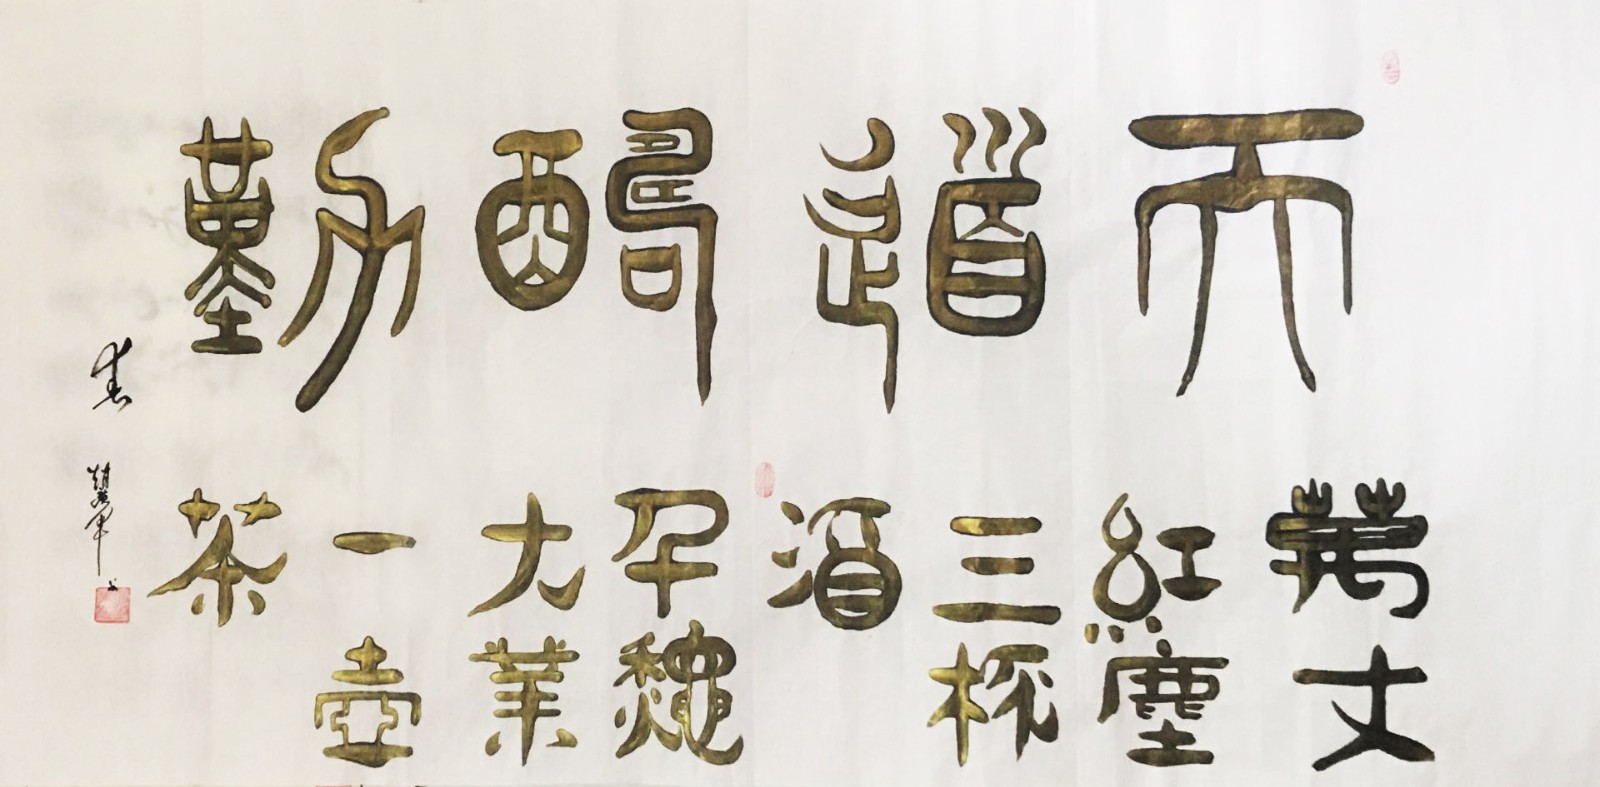 天道酬勤
萬丈紅塵三杯酒
千秋大業一壺茶